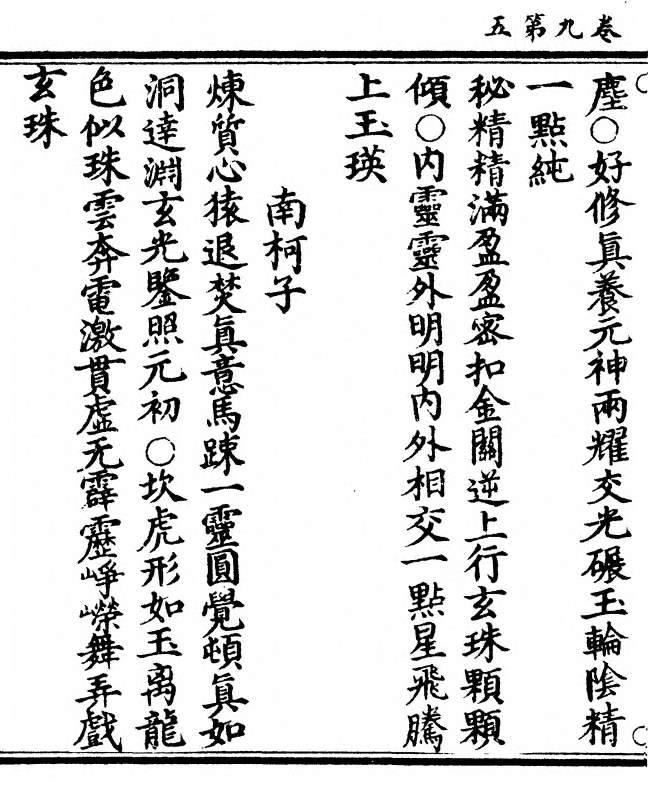 卷九第五
塵○好修眞養元神兩耀交光碾玉輪陰精
一點純
秘精精滿盈盈密扣金關逆上行玄珠顆顆
傾○內靈靈外明明內外相交一點星飛騰
上玉瑛
南柯子
煉質心猿退焚眞意馬踈一靈圓覺頓眞如
洞達淵玄光鑒照元初○坎虎形如玉离龍
色似珠雲奔電激貫虛无霹靂崢嶸舞弄戲
玄珠